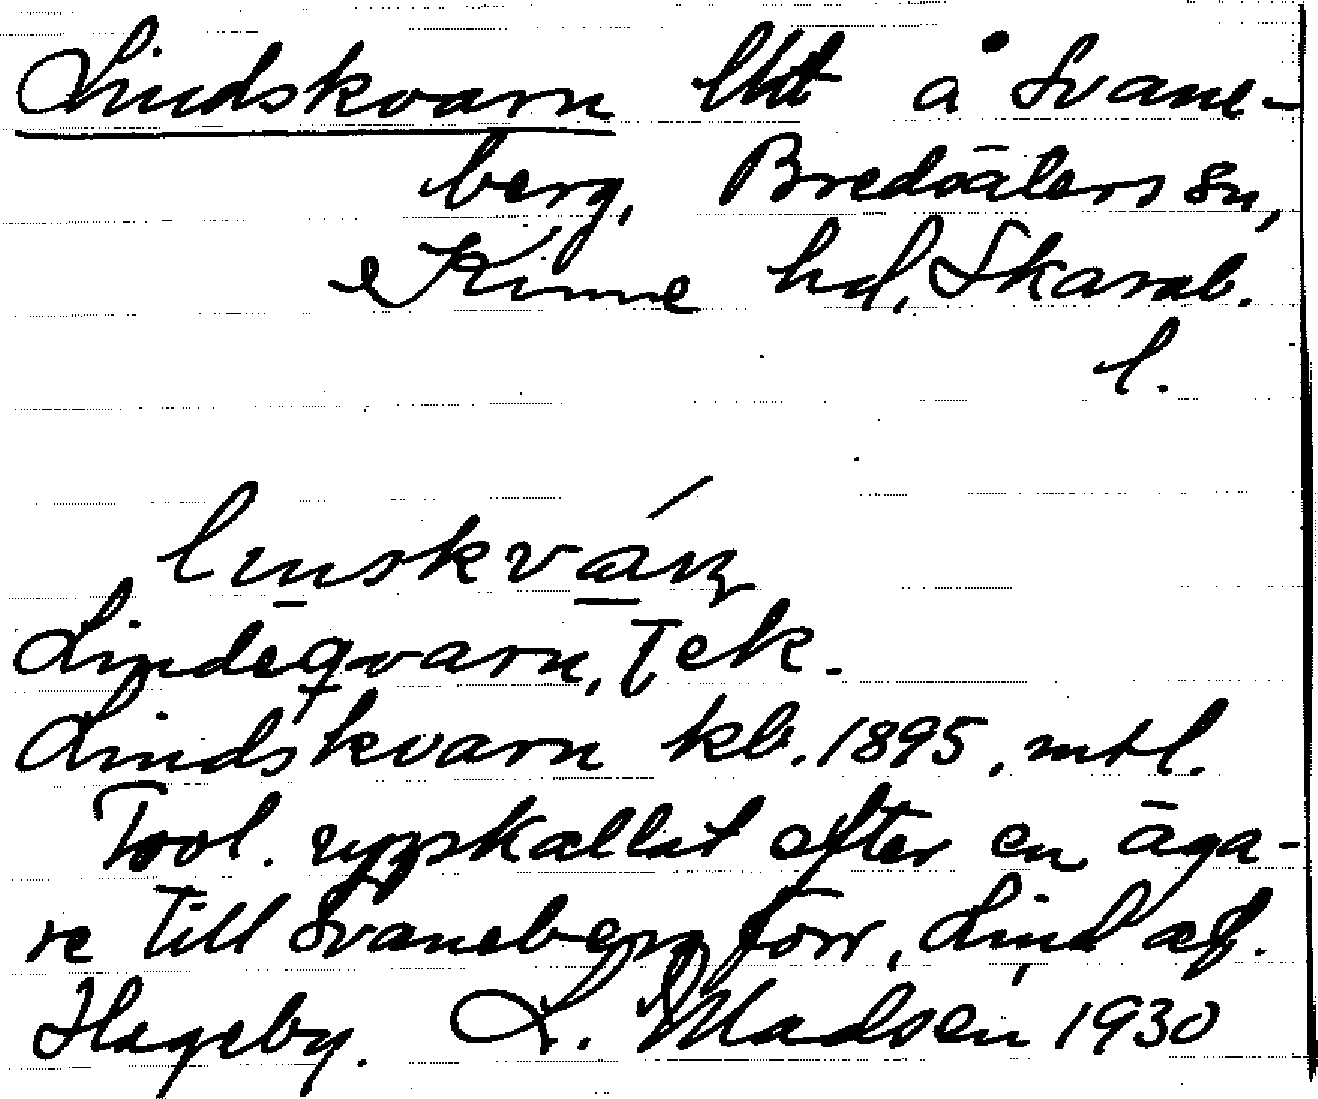 Lindskvarn lht å Svane-
berg, Bredsäters sn,
Kinne hd, Skarab.
l.
linskván​
Lindeqvarn, Jek.
Lindskvarn kb. 1895, mtl.
Tvol. uppkallat efter en äga-
re till Svaneberg förr, Lind af.
Hageby. L. Madsén 1930